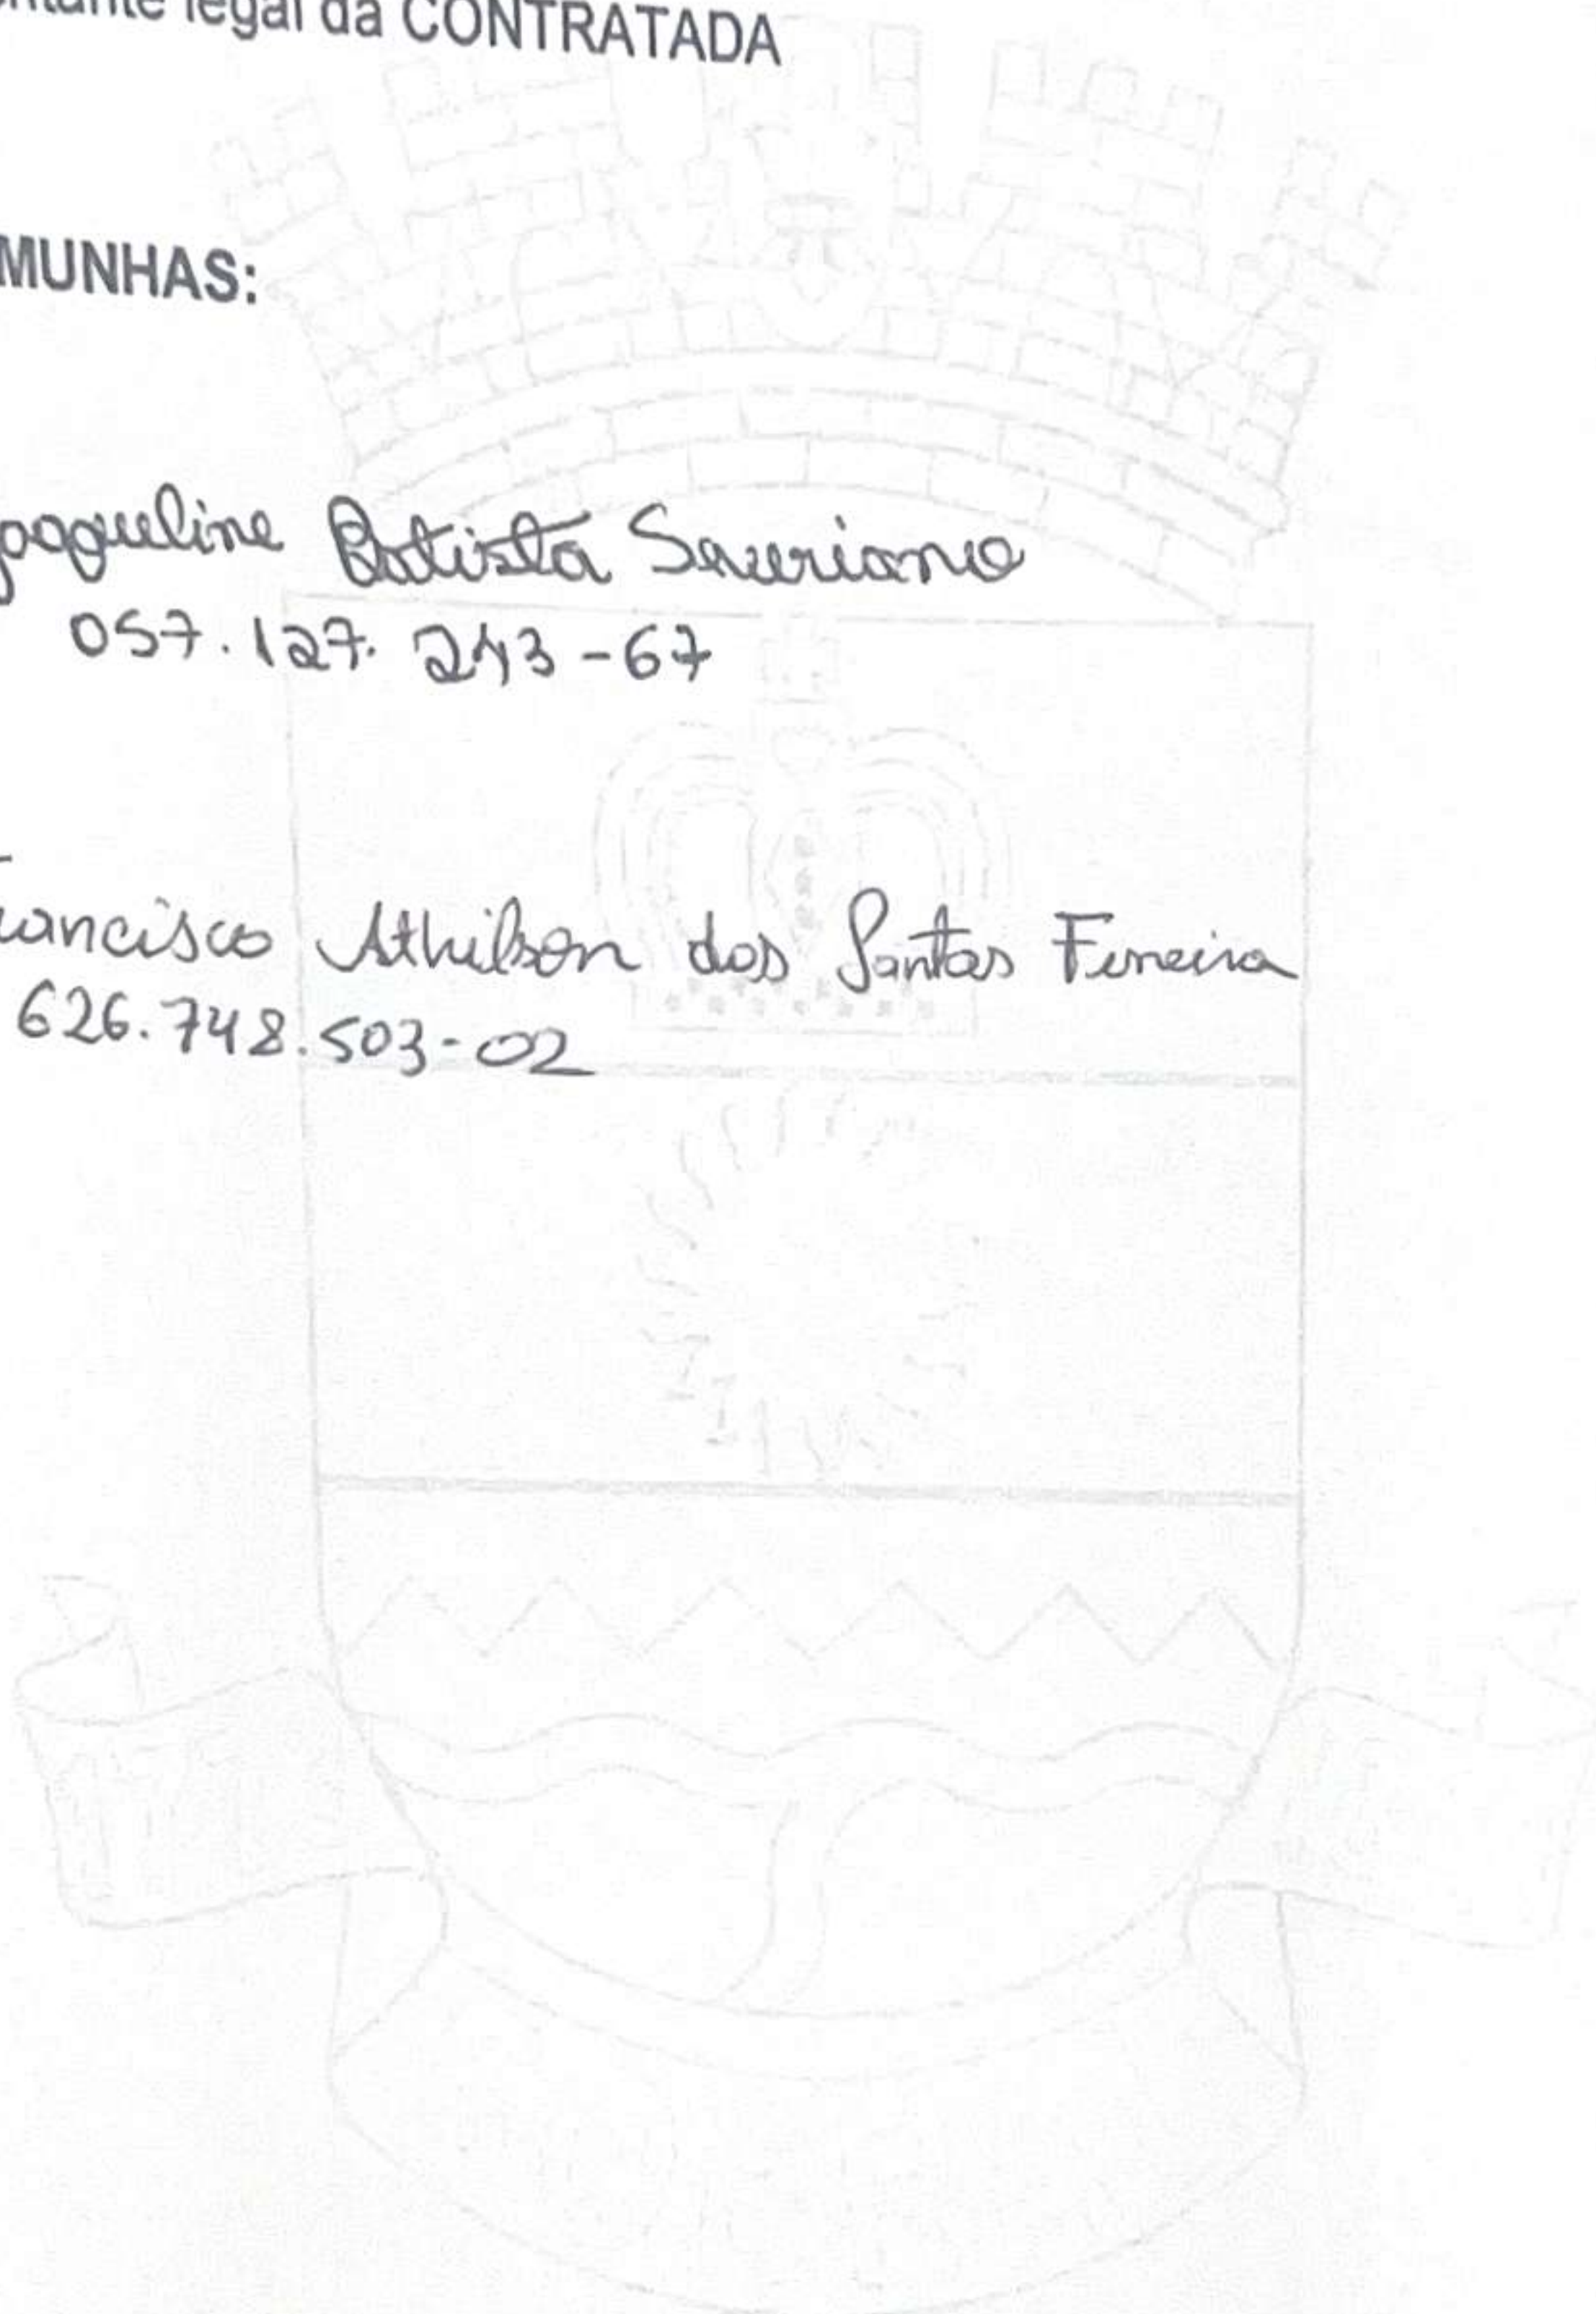 ntante legal da CONTRATADA
MUNHAS:
Jaqueline Batista Severiano
057.127.243-67
rancisco Athilson dos Santos Ferreira
626.748.503-02